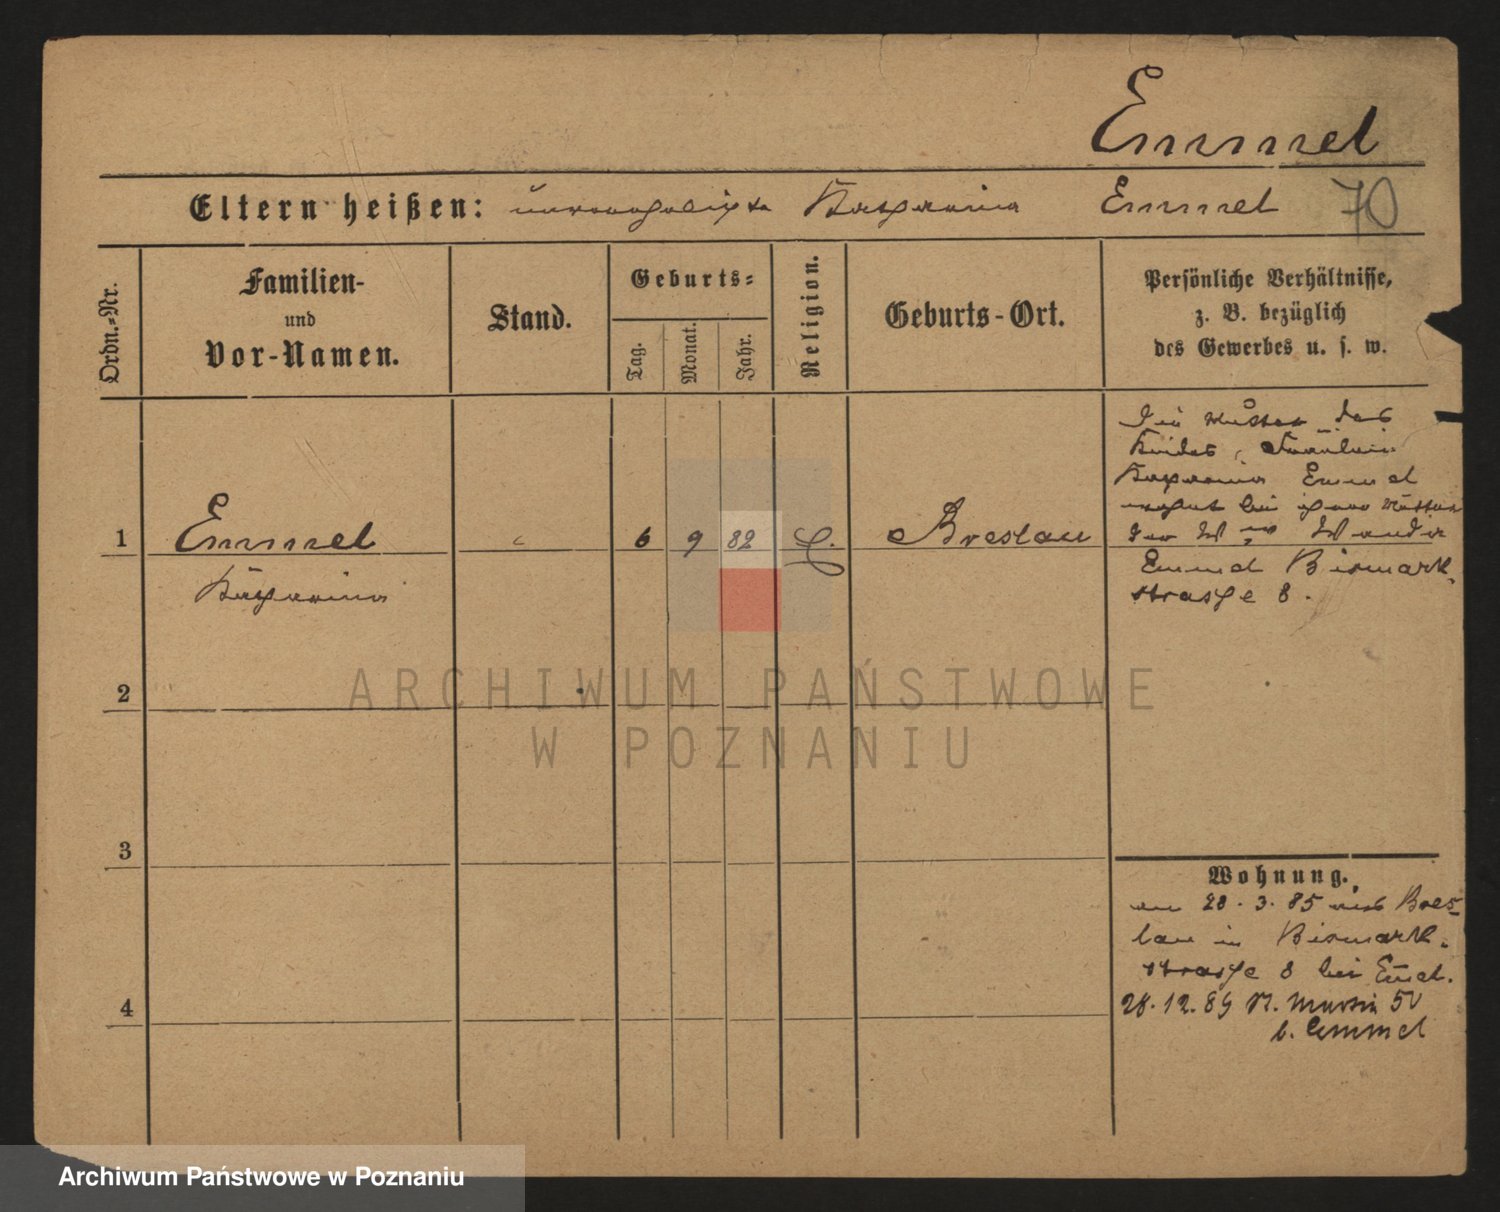 Emmel
Eltern heißen: unverehelichte Katharina Emmel 70
Ordn.-Nr.
Familien-
und
Vor-Namen.
Stand.
Geburts-
Tag.
Monat.
Jahr.
Religion.
Geburts-Ort.
Persönliche Verhältnisse,
z. B. bezüglich
des Gewerbes u. s. w.
1 Emmel 6 9 82 Breslau
Katharina
2
3
4
Die Mutter des
Kindes, Fräulein
Katharina Emmel
wohnt bei ihrer Mutter
der
Emmel Bismark-
strasse 8.
Wohnung.
am 28.3.85 aus Bres-
lau in Bismark-
strasse 8 bei Emel.
28.12.89 St. Martin 50
b. Emmel
ARCHIWUM PAŃSTWOWE
W POZNANIU
Archiwum Państwowe w Poznaniu